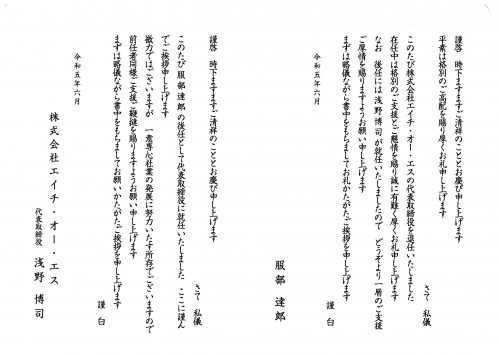 謹啓　時下ますますご清祥のこととお慶び申し上げます
平素は格別のご高配を賜り厚くお礼申し上げます
さて　私儀
このたび株式会社エイチ・オー・エスの代表取締役を退任いたしました
在任中は格別のご支援とご懇情を賜り誠に有難く厚くお礼申し上げます
なお　後任には 浅野 博司 が就任いたしましたので　どうぞより一層のご支援
ご厚情を賜りますようお願い申し上げます
まずは略儀ながら書中をもちましてお礼かたがたご挨拶を申し上げます
謹　白
令和五年六月
服部　達郎
謹啓　時下ますますご清祥のこととお慶び申し上げます
さて　私儀
このたび 服部 達郎 の後任として代表取締役に就任いたしました　ここに謹んでご挨拶申し上げます
微力ではございますが　一意専心社業の発展に努力いたす所存でございますので
前任者同様ご支援ご鞭撻を賜りますようお願い申し上げます
まずは略儀ながら書中をもちましてお願いかたがたご挨拶を申し上げます
謹　白
令和五年六月
株式会社エイチ・オー・エス
代表取締役　浅野　博司